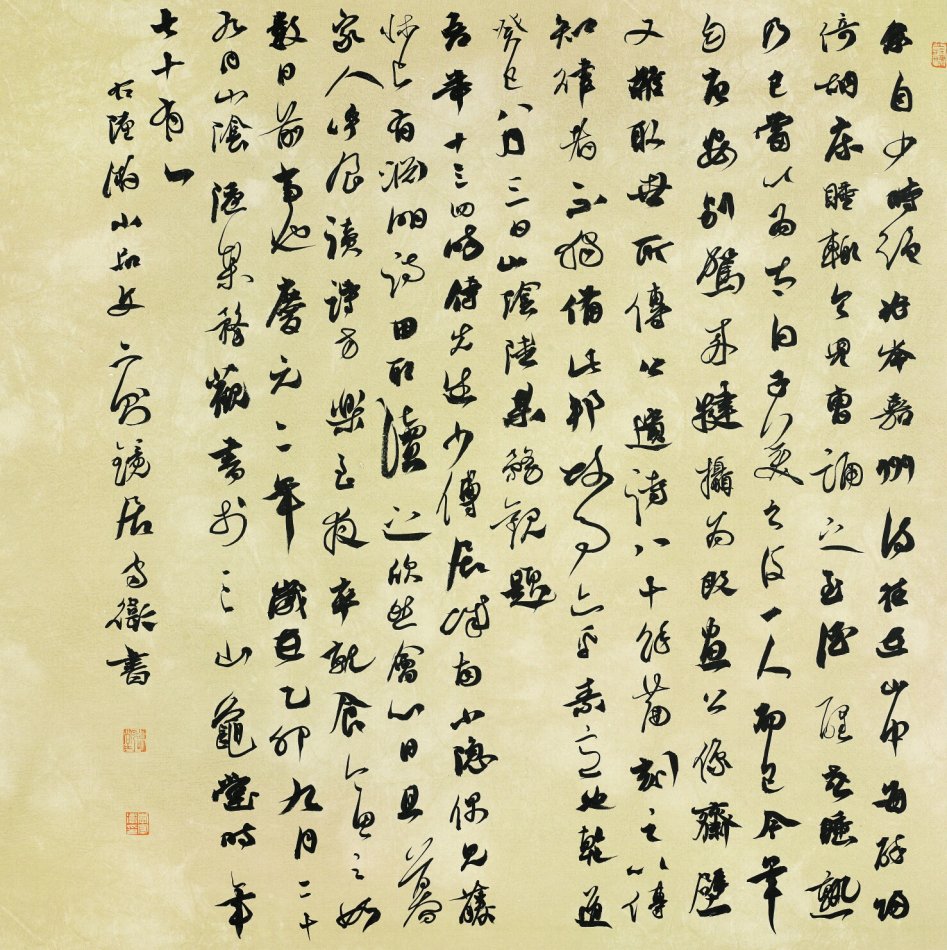 余自少時絕好岑嘉州詩往在山中每醉歸
倚胡床睡輒令兒曹誦之至酒醒或睡熟
乃已嘗以為太白子美之後一人而已今年
自唐安別駕來犍攝為既畫公像齋壁
又雜取世所傳公遺詩八十餘篇刻之以傳
知律者不獨備此邦故事亦平素意也乾道
癸巳八月三日山陰陸某務觀題
吾年十三四時侍先生少傅居城南小隱偶見藤
床上有淵明詩因取讀之欣然會心日且暮
家人呼食讀詩方樂至夜卒就食今思之如
數日前事也慶元二年歲在乙卯九月二十
九日山陰陸某務觀書於三山龜堂時年
七十有一
右陸游小品文二則鏡居守徽書